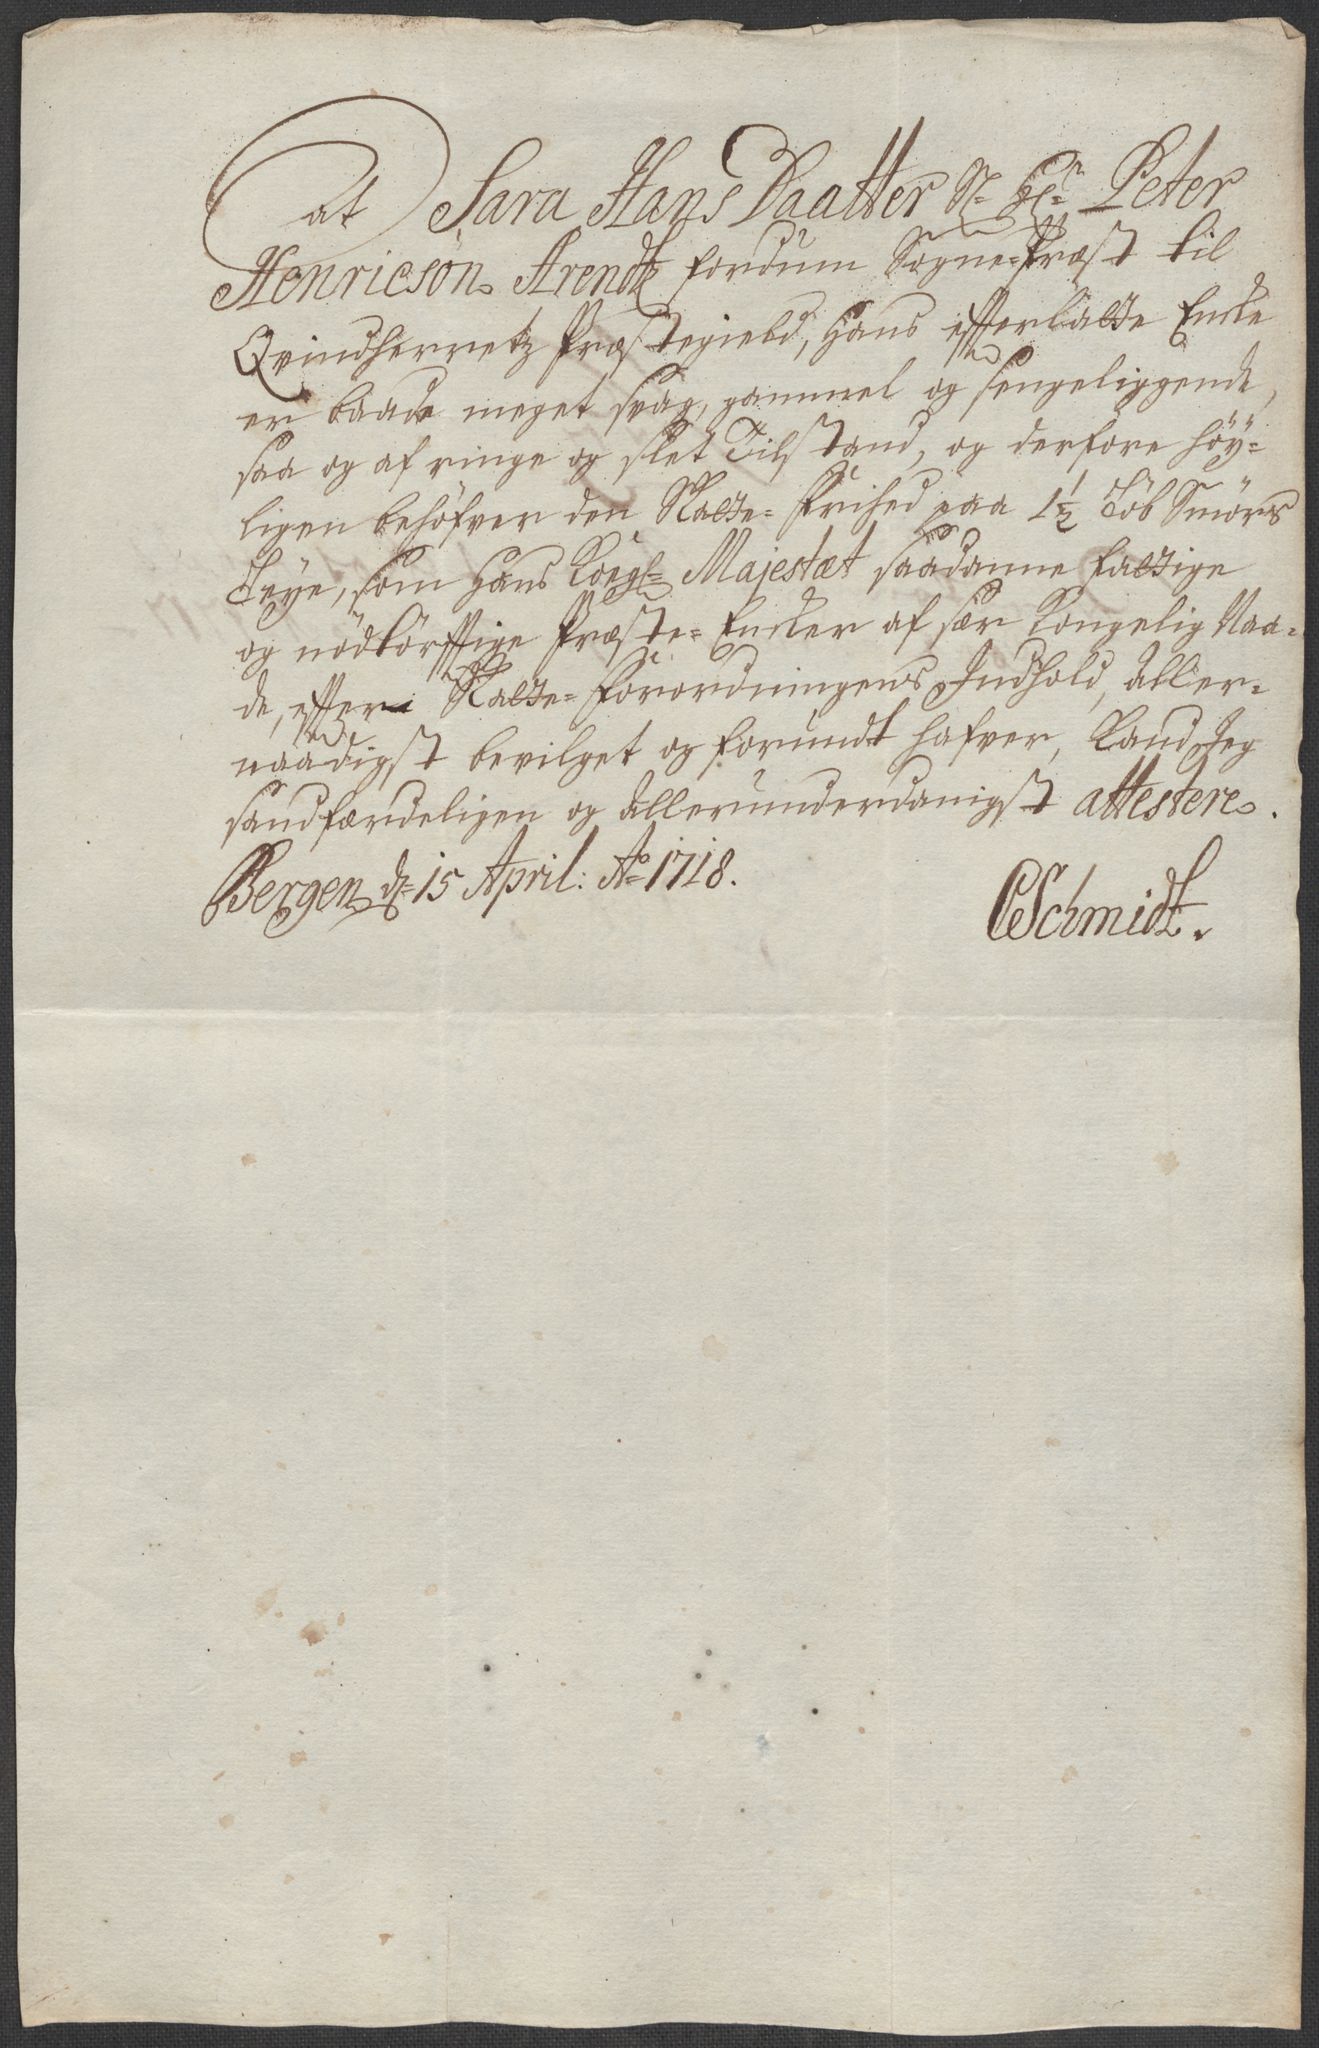 at Sara Hans Daatter Sl: Hr: Peter
Henricsøn Arendtz fordum Sogne-Præst til
Qvindherretz Præstegield, Hans efterladte Encke
er baade meget svag, gammel og sengeliggende,
saa og af ringe og slet Tilstand, og derfore höy-
ligen behöfver den Skatte-Frihed paa 1 1/2 Löb Smörs
Leye, som Hans Kongl: Majestæt saadanne fattige
og nödtörfftige Præste-Encker af sær Kongelig Naa-
de, effter Skatte-Forordningens Indhold, aller-
naadigst bevilget og forundt hafver, Kand Jeg
sandfærdeligen og allerunderdanigst attestere.
Bergen d: 15 April: Ao 1718.
CSchmidt.